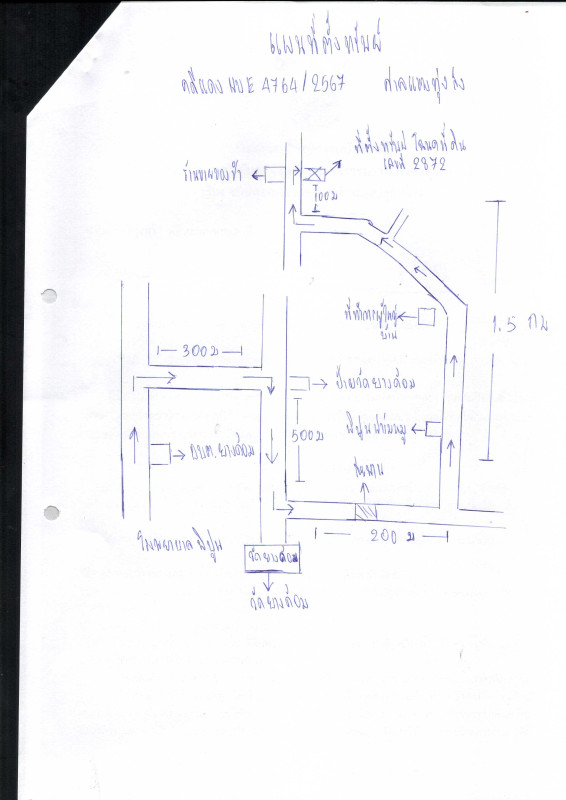 แผนที่ตั้งทรัพย์
คดีแดง ผบE 4764/2567 ศาลแขวงทุ่งสง
ที่ตั้งทรัพย์ โฉนดที่ดิน
เลขที่ 2872
ร้านขายของชำ
100ม
ที่ทำการผู้ใหญ่
บ้าน
1.5 กม
300ม
ป้ายวัดยางค้อม
500ม
พิปูนฟาร์มหมู
อบต.ยางค้อม
สะพาน
200 ม
โรงพยาบาลพิปูน
วัดยางค้อม
วัดยางค้อม